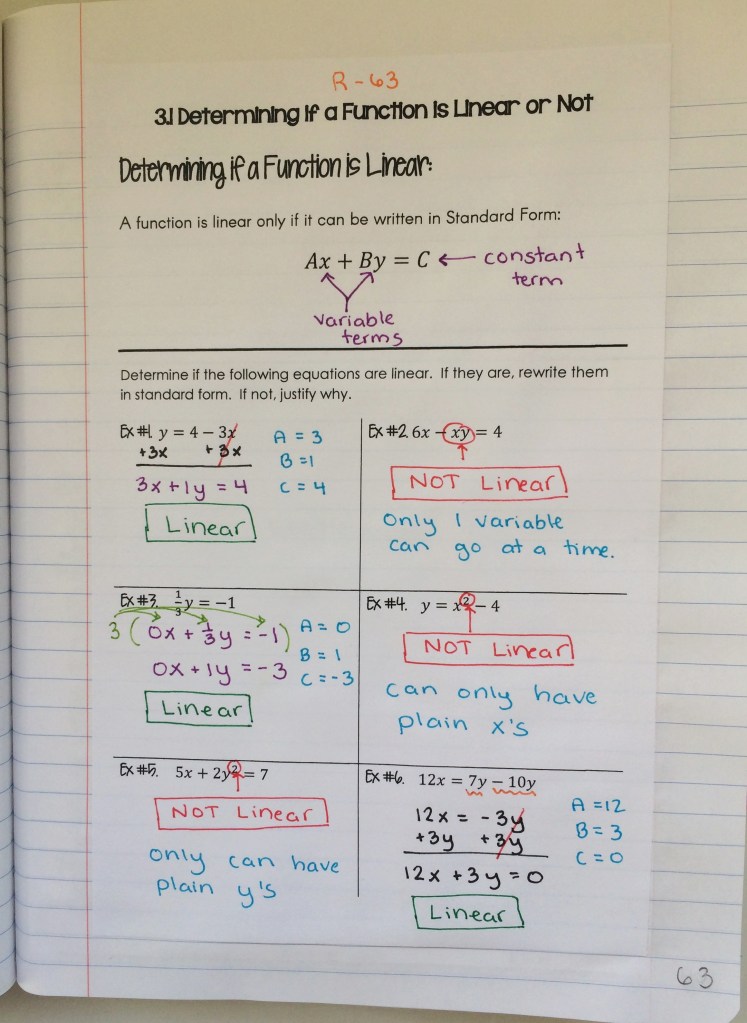 R-63
3.1 Determining if a Function is Linear or Not
Determining if a Function is Linear:
A function is linear only if it can be written in Standard Form:
Ax + By = C ← constant
term
variable
terms
Determine if the following equations are linear. If they are, rewrite them
in standard form. If not, justify why.
Ex #1. y = 4 − 3x
+3x +3x
3x + 1y = 4
Linear
A = 3
B = 1
C = 4
Ex #2. 6x − xy = 4
NOT Linear
only 1 variable
can go at a time.
Ex #3. 1/3 y = −1
3(0x + 1/3 y = -1)
0x + 1y = -3
Linear
A = 0
B = 1
C = -3
Ex #4. y = x² − 4
NOT Linear
can only have
plain x's
Ex #5. 5x + 2y² = 7
NOT Linear
only can have
plain y's
Ex #6. 12x = 7y − 10y
12x = -3y
+3y +3y
12x + 3y = 0
Linear
A = 12
B = 3
C = 0
63